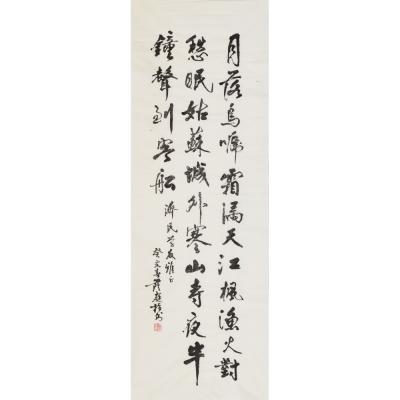 月落烏啼霜滿天江楓漁火對
愁眠姑蘇城外寒山寺夜半
鐘聲到客船
濟民學友雅正
癸文春